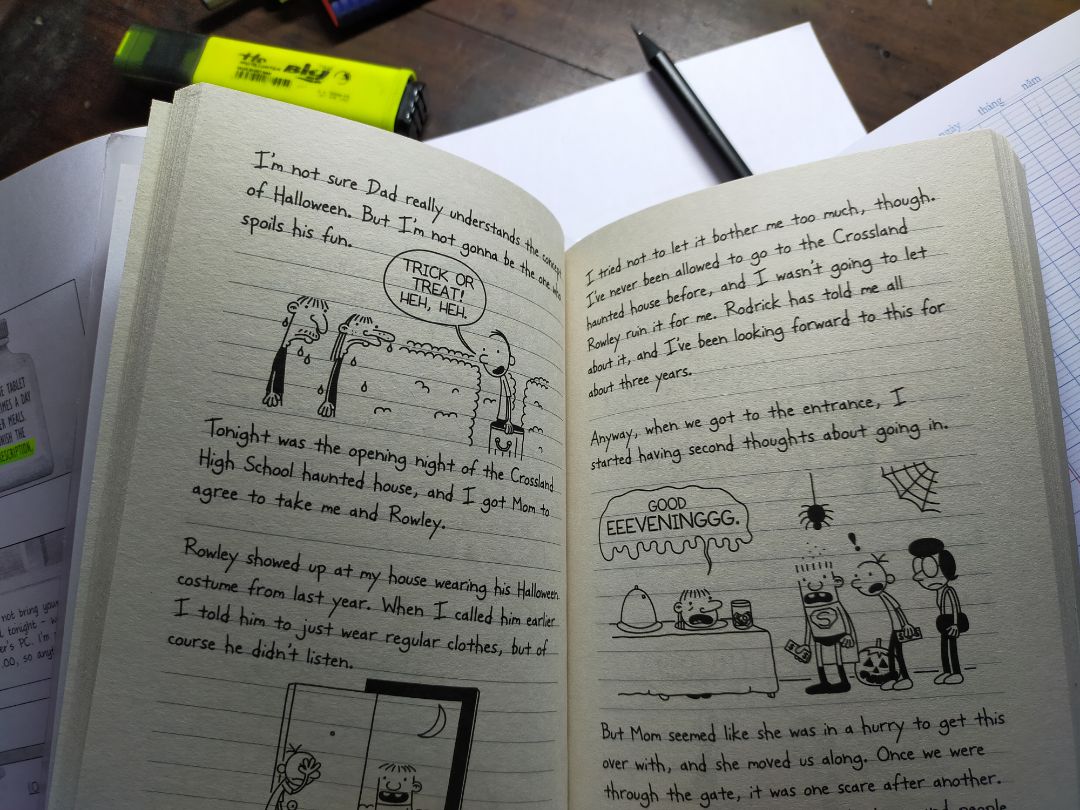 Big
tháng
năm
I'm not sure Dad really understands the concept
of Halloween. But I'm not gonna be the one who
spoils his fun.
TRICK OR
TREAT!
HEH, HEH.
Tonight was the opening night of the Crossland
High School haunted house, and I got Mom to
agree to take me and Rowley.
Rowley showed up at my house wearing his Halloween
costume from last year. When I called him earlier
I told him to just wear regular clothes, but of
course he didn't listen.
I tried not to let it bother me too much, though.
I've never been allowed to go to the Crossland
haunted house before, and I wasn't going to let
Rowley ruin it for me. Rodrick has told me all
about it, and I've been looking forward to this for
about three years.
Anyway, when we got to the entrance, I
started having second thoughts about going in.
GOOD
EEEVENINGGG.
S
But Mom seemed like she was in a hurry to get this
over with, and she moved us along. Once we were
through the gate, it was one scare after another.
TABLET
A DAY
MEALS.
THE
not bring your
tonight -
PC. I'm
so